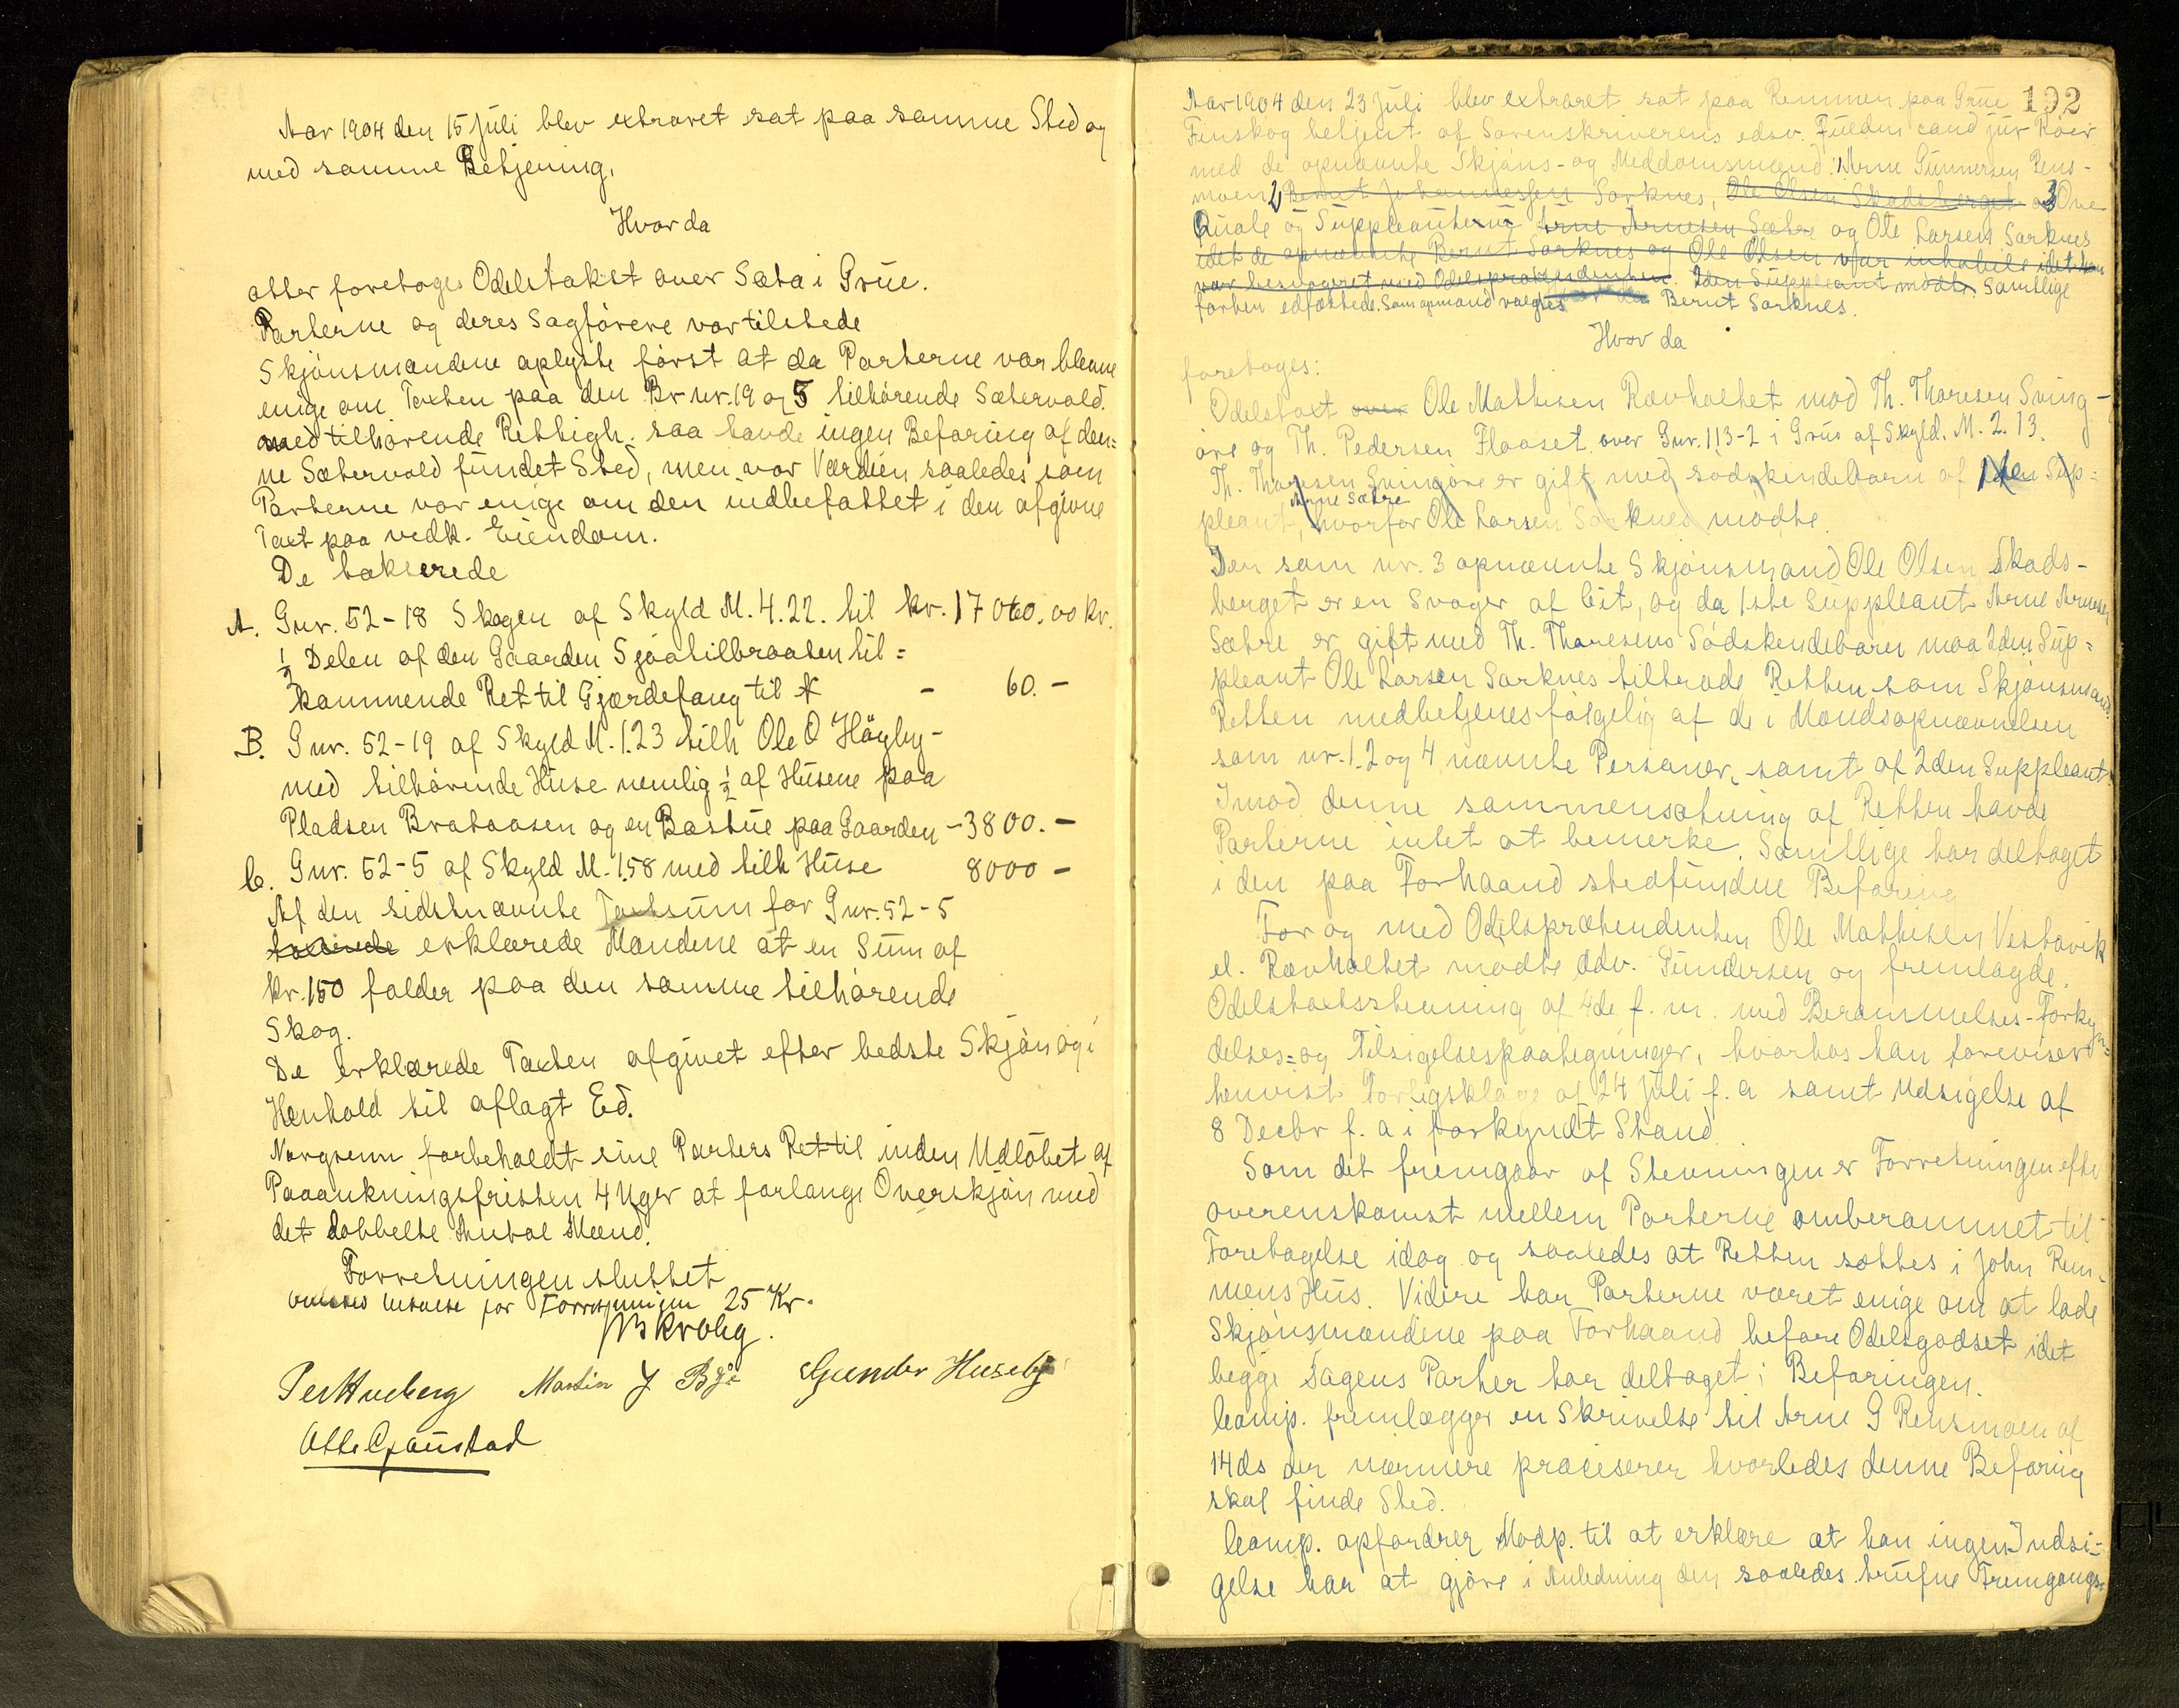 Aar 1904 den 15 Juli blev extraret sat paa samme Sted og
med samme Betjening.
Hvor da
atter foretoges Odelstakst over Sæta i Grue.
Parterne og deres Sagförere var tilstede
Skjönsmændene oplyste först at da Parterne var blevne
enige om Taxten paa den Br nr. 19 og 5 tilhörende Sætervold
med tilhörende Rettigh. saa havde ingen Befaring af den=
ne Sætervold fundet Sted, men var Værdien saaledes som
Parterne var enige om den indbefattet i den afgivne
Taxt paa vedk. Eiendom.
De takserede
A. Gnr. 52-18 Skogen af Skyld M. 4.22. til kr. 17000.00 kr.
½ Delen af den Gaarden Sjöatilbraaten til=
kommende Ret til Gjærdefang til - 60. -
B. Gnr. 52-19 af Skyld M. 1.23 tilh Ole O Högby-
med tilhörende Huse nemlig ½ af Husene paa
Pladsen Brataasen og en Bastue paa Gaarden - 3800. -
C. Gnr. 52-5 af Skyld M. 1.58 med tilh Huse 8000 -
Af den sidstnævnte Taxtsum for Gnr. 52-5
taxerede erklærede Mændene at en Sum af
kr. 150 falder paa den samme tilhörende
Skog.
De erklærede Taxten afgivet efter bedste Skjön og i
Henhold til aflagt Ed.
Norgrenn forbeholdt sine Parters Ret til inden Udlöbet af
Paaankningsfristen 4 Uger at forlange Overskjön med
det dobbelte Antal Mænd.
Forretningen sluttet
for Forretningen 25 Kr.
Krohg.
Martin J Bye Gunder Huseby
Otto Graustad
192
Aar 1904 den 23 Juli blev extraret sat paa Remmen paa Grue
Finskog betjent af Sorenskriverens edsv. Fuldm cand jur Roer
med de opnævnte Skjöns- og Meddomsmænd: 1 Arne Gunnersen Rens-
moen 2 Bernt Johannessen Sorknes, Ole Olsen Skadsberget og 3 Ove
Quale og Suppleanterne Arne Arnesen Sætre og Ole Larsen Sorknes
idet de opnævnte Bernt Sorknes og Ole Olsen var inhabile idet han
var besvogret med Odelsprætendenten. 2den Suppleant mödte. Samtlige
forhen edfæstede. Som opmand valgtes Bernt Sorknes.
Hvor da
foretoges:
Odelstaxt over Ole Mathisen Rævholtet mod Th. Thoresen Sving-
öre og Th. Pedersen Flaaset over Gnr. 113-2 i Grue af Skyld. M. 2.13.
Th. Thoresen Svingöre er gift med södskendebarn af 1ste Sup=
Arne Sætre
pleant, hvorfor Ole Larsen Sorknes mödte.
Den som nr. 3 opnævnte Skjönsmand Ole Olsen Skads-
berget er en Svoger af Cit, og da 1ste Suppleant Arne Arnesen
Sætre er gift med Th. Thoresens Södskendebarn maa 2den Sup=
pleant Ole Larsen Sorknes tiltræde Retten som Skjönsmand.
Retten medbetjenes fölgelig af de i Mandsopnævnelsen
som nr. 1. 2 og 4 nævnte Personer, samt af 2den Suppleant.
Imod denne sammensætning af Retten havde
Parterne intet at bemerke. Samtlige har deltaget
i den paa Forhaand stedfundne Befaring
For og med Odelsprætendenten Ole Mathisen Vestavik
el. Rævholtet mödte Adv. Gundersen og fremlagde
Odelstaxtsstevning af 4de f. m. med Berammelses- Forkyn-
delses= og Tilsigelsespaategninger, hvorhos han foreviser
henvist Forligsklage af 24 Juli f. a samt Udsigelse af
8 Decbr f. a i forkyndt Stand
Som det fremgaar af Stevningen er Forretningen efter
overenskomst mellem Parterne omberammet til
Foretagelse idag og saaledes at Retten sættes i John Rem-
mens Hus. Videre har Parterne været enige om at lade
Skjönsmændene paa Forhaand befare Odelsgodset idet
begge Sagens Parter har deltaget i Befaringen.
Comp. fremlægger en Skrivelse til Arne G Rensmoen af
14 ds der nærmere præciserer hvorledes denne Befaring
skal finde Sted.
Comp. opfordrer Modp. til at erklære at han ingen Indsi-
gelse har at gjöre i Anledning den saaledes trufne Fremgangs-